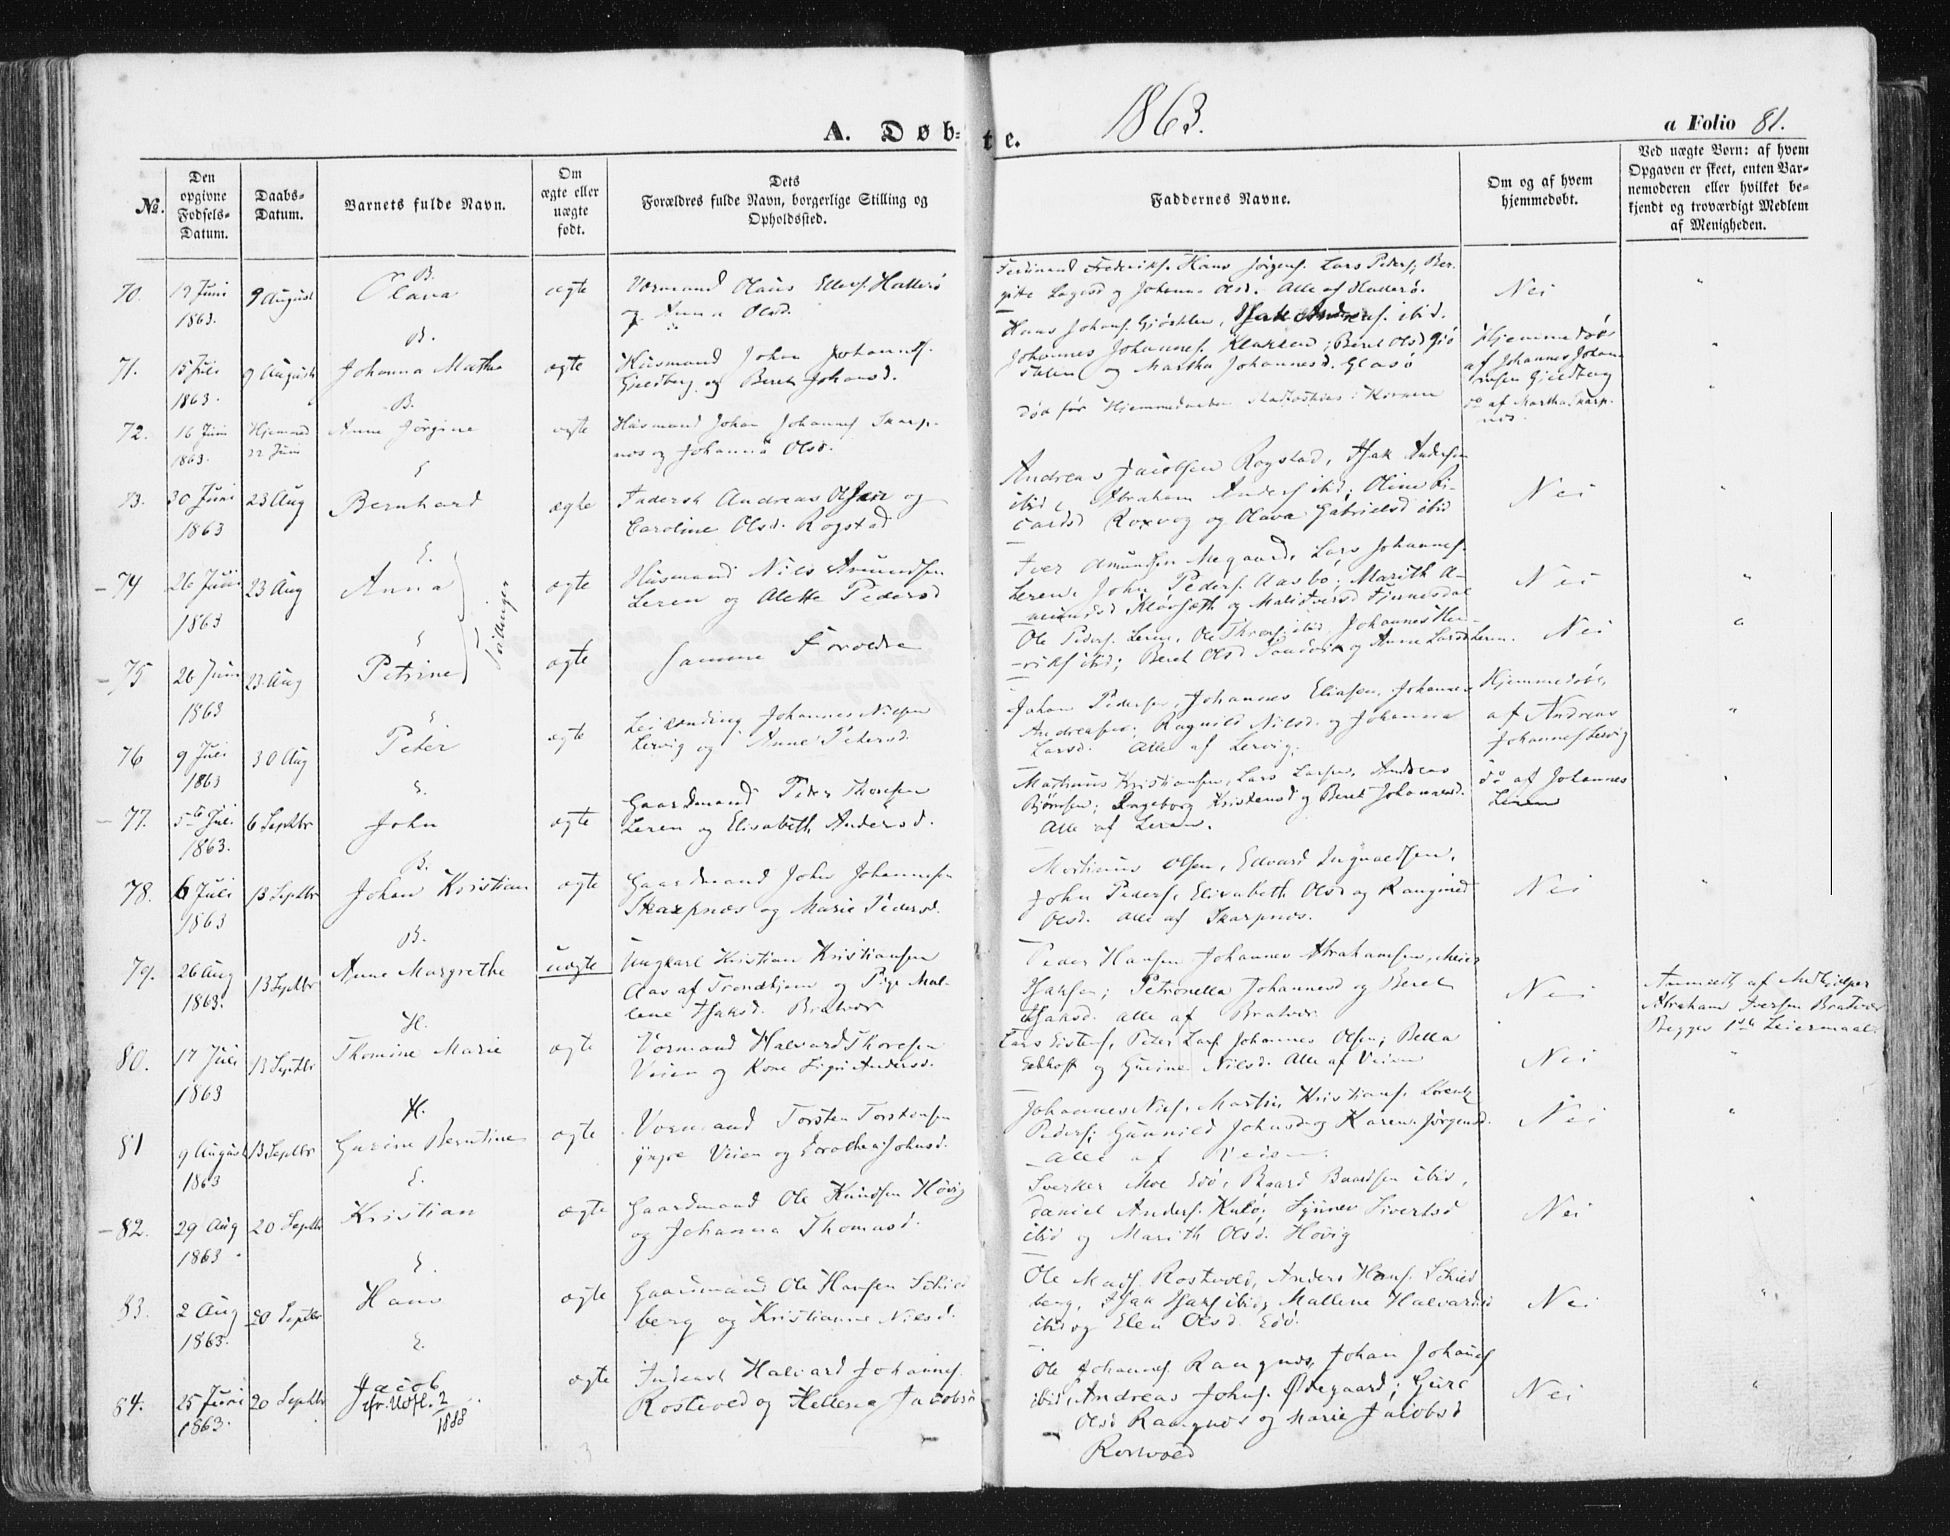 A. Døbte.
1863.
a Folio 81.
№.
Den opgivne Fødsels-Datum.
Daabs-Datum.
Barnets fulde Navn.
Om ægte eller uægte født.
Dets Forældres fulde Navn, borgerlige Stilling og Opholdssted.
Faddernes Navne.
Om og af hvem hjemmedøbt.
Ved uægte Børn: af hvem Opgaven er skeet, enten Barnemoderen eller hvilket bekjendt og troværdigt Medlem af Menigheden.
70.
19 Juni
1863.
9 August
B.
Olava
ægte
Olaus Ellefs. Hallerø
og Anna Olsd.
Ferdinand Frederiks. Hans Jørgens. Lars Peders. Ber-
og Johanna Olsd. Alle af Hallerø.
Nei
71.
15 Juli
1863.
9 August
B.
Johanna Mathea
ægte
Huusmand Johan Johannes.
Gjeldberg og Beret Johansd.
Hans Johans. Isak Anders. ibid.
Johannes Johannes. Beret Olsd
og Martha Johannesd. Glasø
Hjemmedøbt
af Johannes Johan-
nesen Gjeldberg
72.
16 Juni
1863.
Hjemmed
22 Juni
B.
Anne Jørgine
ægte
Huusmand Johan Johannes. Skarp-
nes og Johanna Olsd.
død før Hjemmedaaben i Kirken
do af Martha Skarp-
nes.
73.
30 Juni
1863
23 Aug
E
Bernhard
ægte
Inderst Andreas Olsen og
Caroline Olsd. Rogstad
Andreas Jacobsen Rogstad, Isak Andersen
ibid, Abraham Anders. ibid; Oline Ri-
cardsd Roxvog og Olava Gabrielsd ibid
Nei
74
26 Juni
1863
23 Aug
E.
Anna
Tvillinger
ægte
Huusmand Nils Amundsen
Leren og Alette Pedersd
Iver Amundsen Megaard, Lars Johannes.
Leren, John Peders. Aasbø; Marith A-
mundsd og
Nei
75
26 Juni
1863
23 Aug
E
Petrine
ægte
Samme Forældre
Ole Peders. Leren, Ole Thores. ibid, Johannes Hen-
riks. ibid; Beret Olsd og Anne Larsd Leren.
Nei
76
9 Juli
1863
30 Aug
E
Peter
ægte
Leilænding Johannes Nilsen
Lervig og Anne Petersd.
Johan Pedersen, Johannes Eliasen, Johannes
Andreasen; Ragnild Nilsd. og Johanna
Larsd. Alle af Lervig.
Hjemmedøbt,
af Andreas
Johannes. Lervig
77.
5te Juli
1863.
6 Septbr
E.
John
ægte
Gaardmand Peder Thoresen
Leren og Elisabeth Andersd.
Mathias Kristiansen, Lars Larsen, Andreas
Bjørnsen; Ingeborg Kristensd og Beret Johannesd.
Alle af Leren.
do af Johannes
Leren
78.
6 Juli
1863
13 Septbr
B.
Johan Kristian
ægte
Gaardmand John Johannesen
Skarpnæs og Marie Pedersd.
Olsen, Edvard Ingvaldsen,
John Peders. Elisabeth Olsd og Rangnild
Olsd. Alle af Skarpnes.
Nei
79.
26 Aug
1863.
13 Septbr
B.
Anne Margrethe
uægte
Ungkarl Kristian Kristiansen
Aas af Trondhjem og Pige Mal-
lene Isaksd. Bratvær
Peder Hansen Johannes Abrahamsen, Meier
Isaksen; Petronella Johannesd og Beret
Isaksd. alle af Bratvær
Nei
Anmeldt af Medhjelper
Abraham Iversen Bratvær
Begges 1ste Leiermaal
80.
17 Juli
1863
13 Septbr
H.
Thomine Marie
ægte
Halvard Thoresen
Veien og Kone Andersd.
Lars Peter Lars. Johannes Olsen; Bella
og Gurine Nilsd. Alle af Veien
Nei
81
9 August
1863
13 Septbr
H.
Gurine Berntine
ægte
Torsten Torstensen
yngre Veien og Dorothea Johnsd.
Johannes Nils. Martin Kristians. Lorentz
Peders; Gunnild Johnsd og Karen Jørgensd.
Alle af Veien.
Nei
82.
29 Aug
1863.
20 Septbr
E.
Kristian
ægte
Gaardmand Ole Knudsen Høvig
og Johanna Thomasd.
Sverker Moe Edø, Baard Baardsen ibid,
Daniel Anders. Kulø; Synnev Sivertsd
ibid og Marith Olsd. Høvig
Nei
83.
2 Aug
1863.
20 Septbr
E.
Hans
ægte
Gaardmand Ole Hansen
berg og Kristianne Nilsd.
Ole Mads. Rostvold, Anders Hans.
berg, Isak Isaks. ibid; Mallene Halvardsd
ibid og Elen Olsd. Edø.
Nei
84.
25 Juni
1863.
20 Septbr
E.
Jacob
jfr. Udfl. 2/1888
ægte
Inderst Halvard Johannes.
Rostvold og Jacobsd
Ole Johannes. Rangnes, Johan Johans.
ibid, Andreas Johns. Ødegaard; Guri
Olsd Rangnes og Marie Jacobsd
Rostvold
Nei